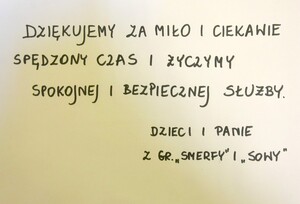 DZIĘKUJEMY ZA MIŁO I CIEKAWIE
SPĘDZONY CZAS I ŻYCZYMY
SPOKOJNEJ I BEZPIECZNEJ SŁUŻBY.
DZIECI I PANIE
Z GR. „SMERFY" I „SOWY"